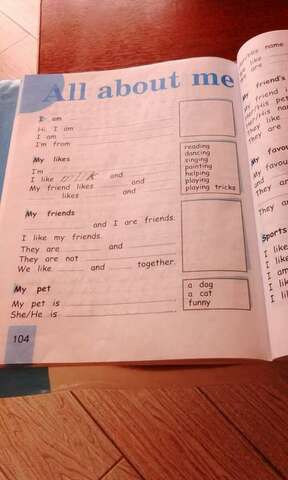 All about me
I am
Hi, I am
I am
I'm from
My likes
I'm
I like and
My friend likes and
likes and
reading
dancing
singing
painting
helping
playing
playing tricks
My friends
and I are friends.
I like my friends.
They are and
They are not
We like and together.
My pet
My pet is
She/He is
a dog
a cat
funny
104
name
like
are
My friend's
My friend i
Her/His pet
They like
They are
My favou
My favou
and
They are
They are
Sports
I like
I like
I am
I lik
I li